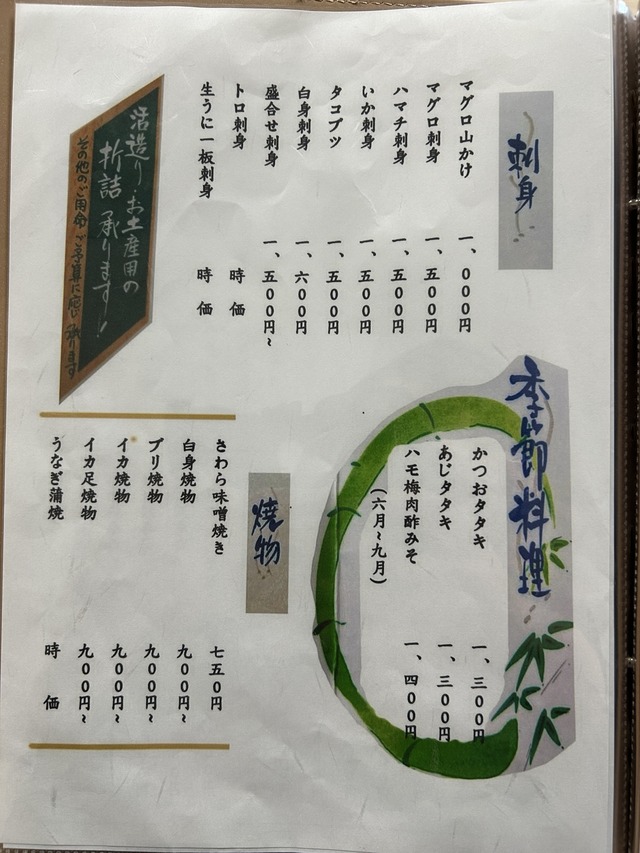 刺身
マグロ山かけ 一、000円
マグロ刺身 一、五00円
ハマチ刺身 一、五00円
いか刺身 一、五00円
タコブツ 一、五00円
白身刺身 一、六00円
盛合せ刺身 一、五00円~
トロ刺身 時価
生うに一板刺身 時価
活造り・お土産用の
折詰 承ります!
その他のご用命 ご予算に応じ 承ります
季節料理
かつおタタキ 一、三00円
あじタタキ 一、三00円
ハモ梅肉酢みそ 一、四00円
(六月~九月)
焼物
さわら味噌焼き 七五0円
白身焼物 九00円~
ブリ焼物 九00円~
イカ焼物 九00円~
イカ足焼物 九00円~
うなぎ蒲焼 時価